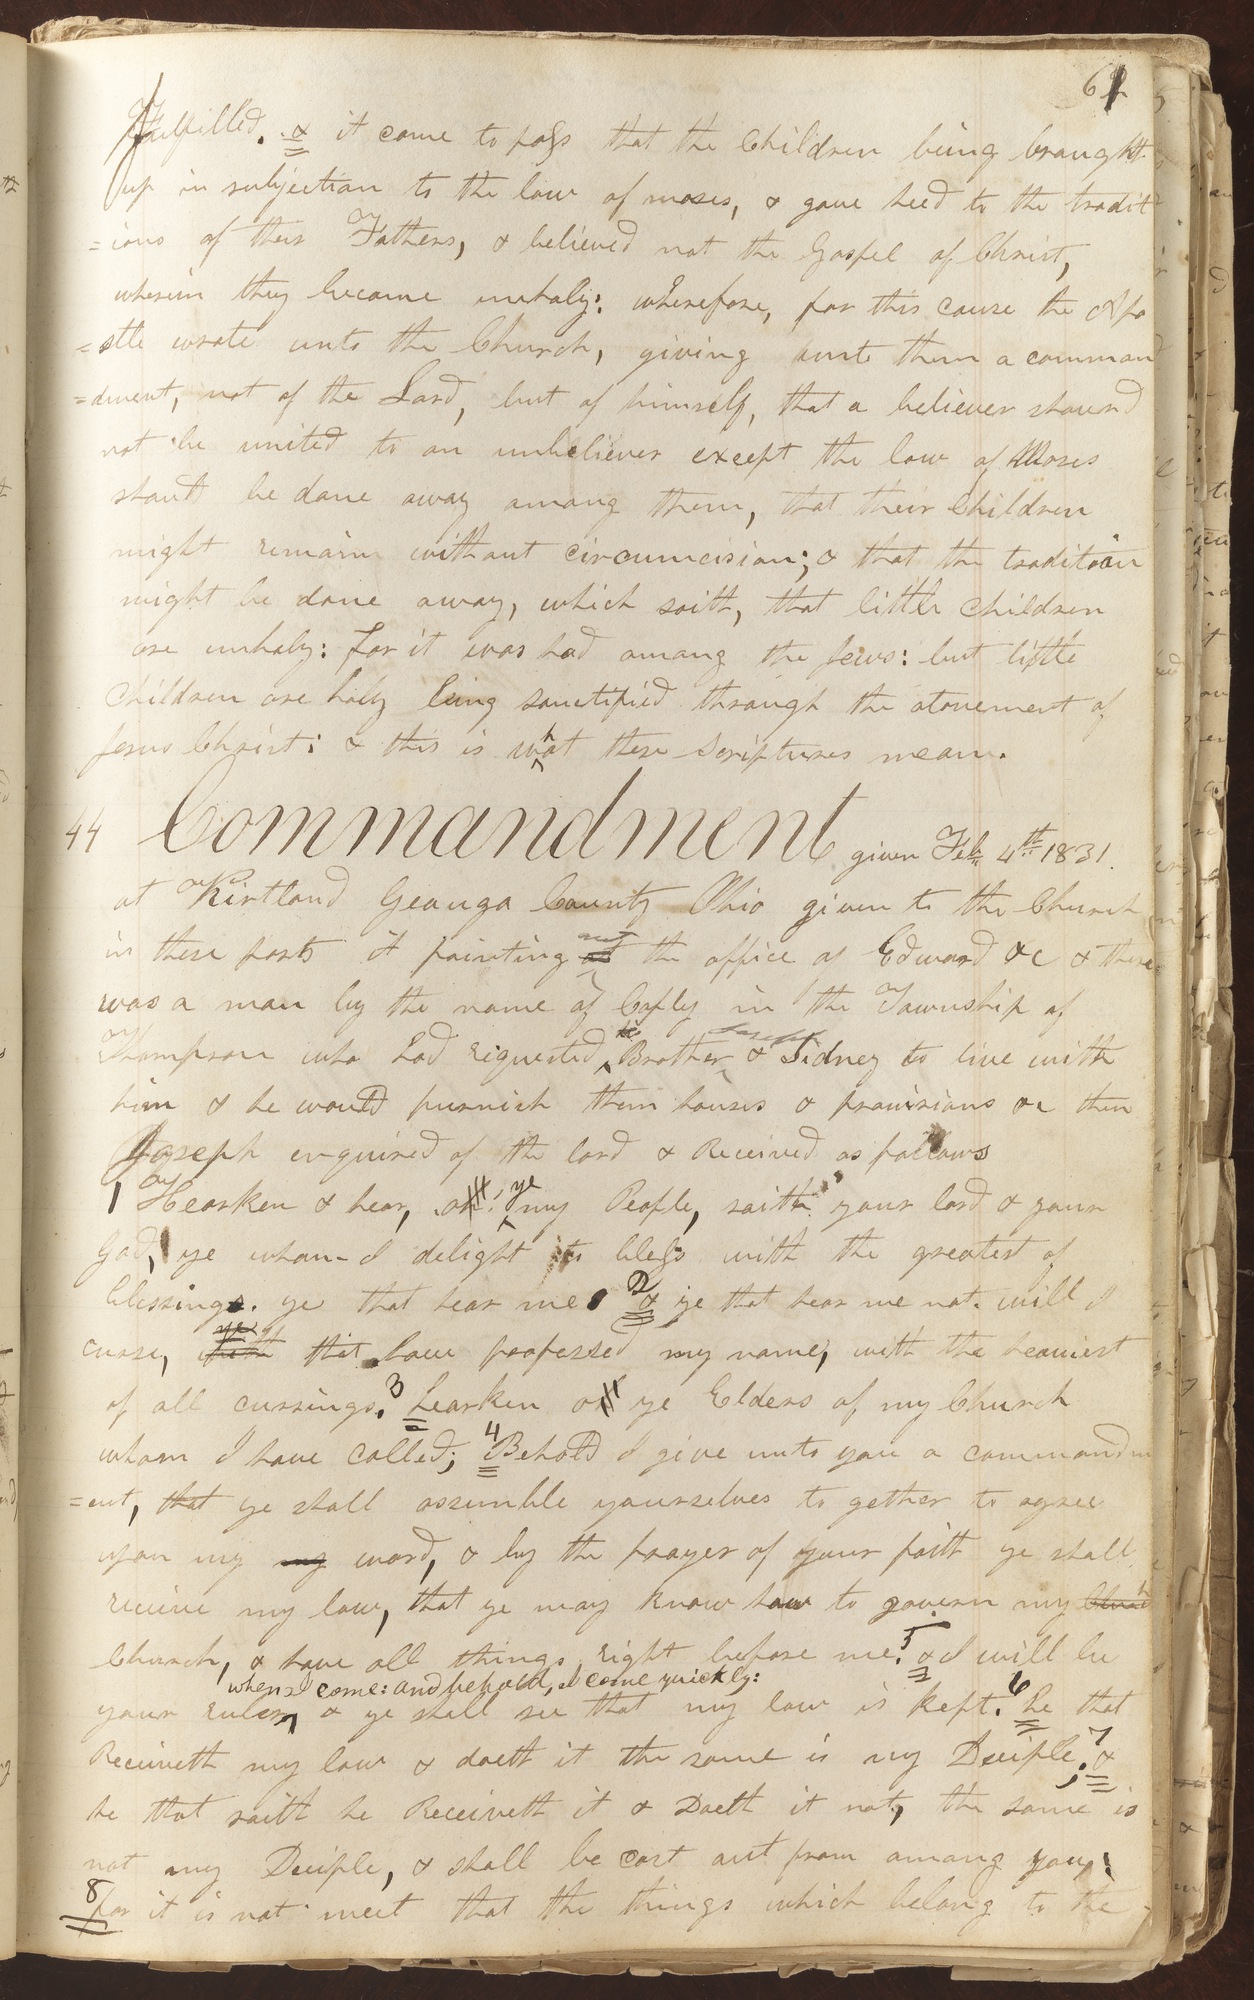 61
Fulfilled. & it came to pass that the Children being brought
up in subjection to the law of moses, & gave heed to the tradit
=ions of their Fathers, & believed not the Gospel of Christ,
wherein they became unholy: wherefore, for this cause the Apo
=stle wrote unto the Church, giving unto them a comman
=dment, not of the Lord, but of himself, that a believer should
not be united to an unbeliever except the law of Moses
should be done away among them, that their Children
might remain without circumcision; & that the tradition
might be done away, which saith, that little children
are unholy: for it was had among the Jews: but little
Children are holy being sanctified through the atonement of
Jesus Christ: & this is what these Scriptures mean.
44 Commandment given Feb. 4th 1831.
at Kirtland Geauga County Ohio given to the Church
in these parts it pointing out the office of Edward &c & there
was a man by the name of Copley in the Township of
Thompson who had requested Brother Joseph & Sidney to live with
him & he would furnish them houses & provisions &c then
Joseph enquired of the lord & Received as follows
1 Hearken & hear, oh! ye my People, saith your lord & your
God, ye whom I delight to bless with the greatest of
blessings. ye that hear me 2 & ye that hear me not will I
curse, ye that have professed my name, with the heaviest
of all cursings. 3 hearken oh ye Elders of my Church
whom I have called; 4 Behold I give unto you a commandm
=ent, that ye shall assemble yourselves to gether to agree
upon my my word, & by the prayer of your faith ye shall
receive my law, that ye may know how to govern my
Church, & have all things right before me. 5 & I will be
when I come: and behold, I come quickly:
your ruler, & ye shall see that my law is kept. 6 he that
Receiveth my law & doeth it the same is my Deciple; 7 &
he that saith he Receiveth it & Doeth it not, the same is
not my Deciple, & shall be cast out from among you:
8 for it is not meet that the things which belong to the